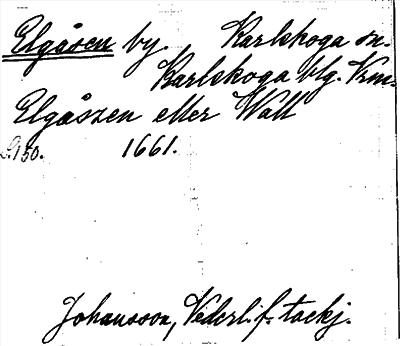 Elgåsen by. Karlskoga sn.
Karlskoga blg. Vrm.
Elgåszen eller Wall
S. 150. 1661.
Johansson, Vederl. f. tackj.